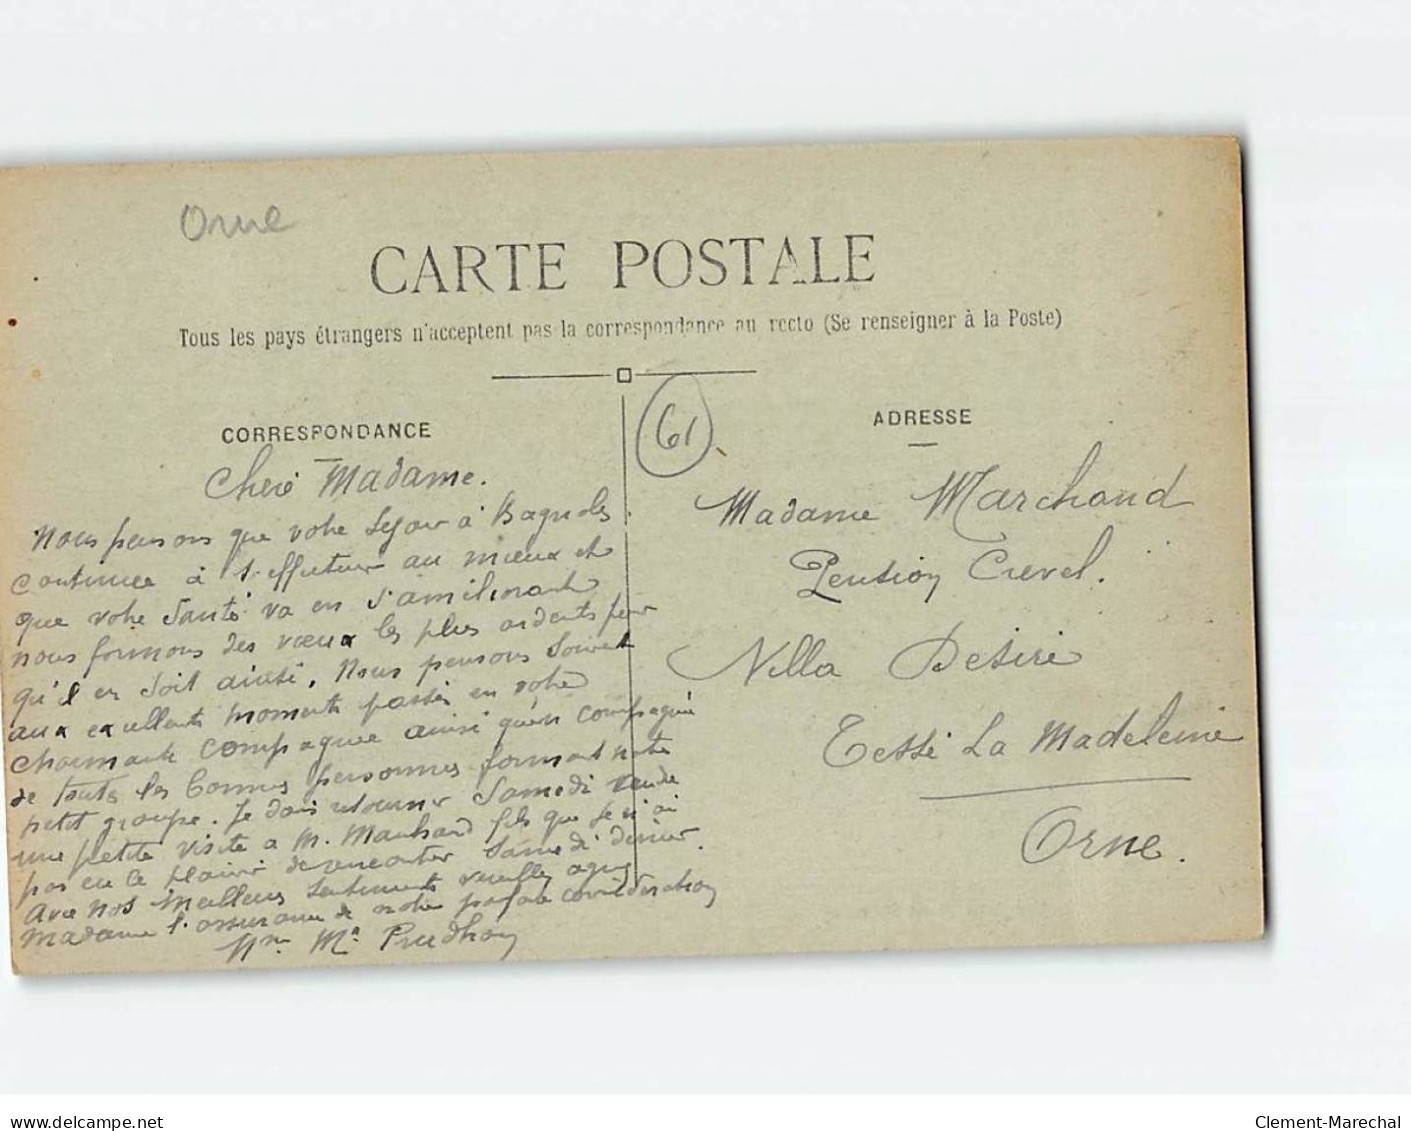 Orne
CARTE POSTALE
Tous les pays étrangers n'acceptent pas la correspondance au recto (Se renseigner à la Poste)
CORRESPONDANCE
Chère Madame.
Nous pensons que votre séjour à Bagnoles
continue à s'effectuer au mieux et
que votre santé va en s'améliorant
nous formons des vœux les plus ardents pour
qu'il en soit ainsi. Nous pensons souvent
aux excellents moments passés en votre
charmante compagnie ainsi qu'en compagnie
de toutes les bonnes personnes formant notre
petit groupe. Je dois retourner Samedi rendre
une petite visite à M. Marchand fils que je n'ai
pas eu le plaisir de rencontrer Samedi dernier.
Avec nos meilleurs sentiments veuillez agréer
Madame l'assurance de notre parfaite considération
Mr Me Prudhon
61
ADRESSE
Madame Marchand
Pension Crevel.
Villa Désiré
Tessé La Madeleine
Orne.
delcampe.net
Clement-Marechal